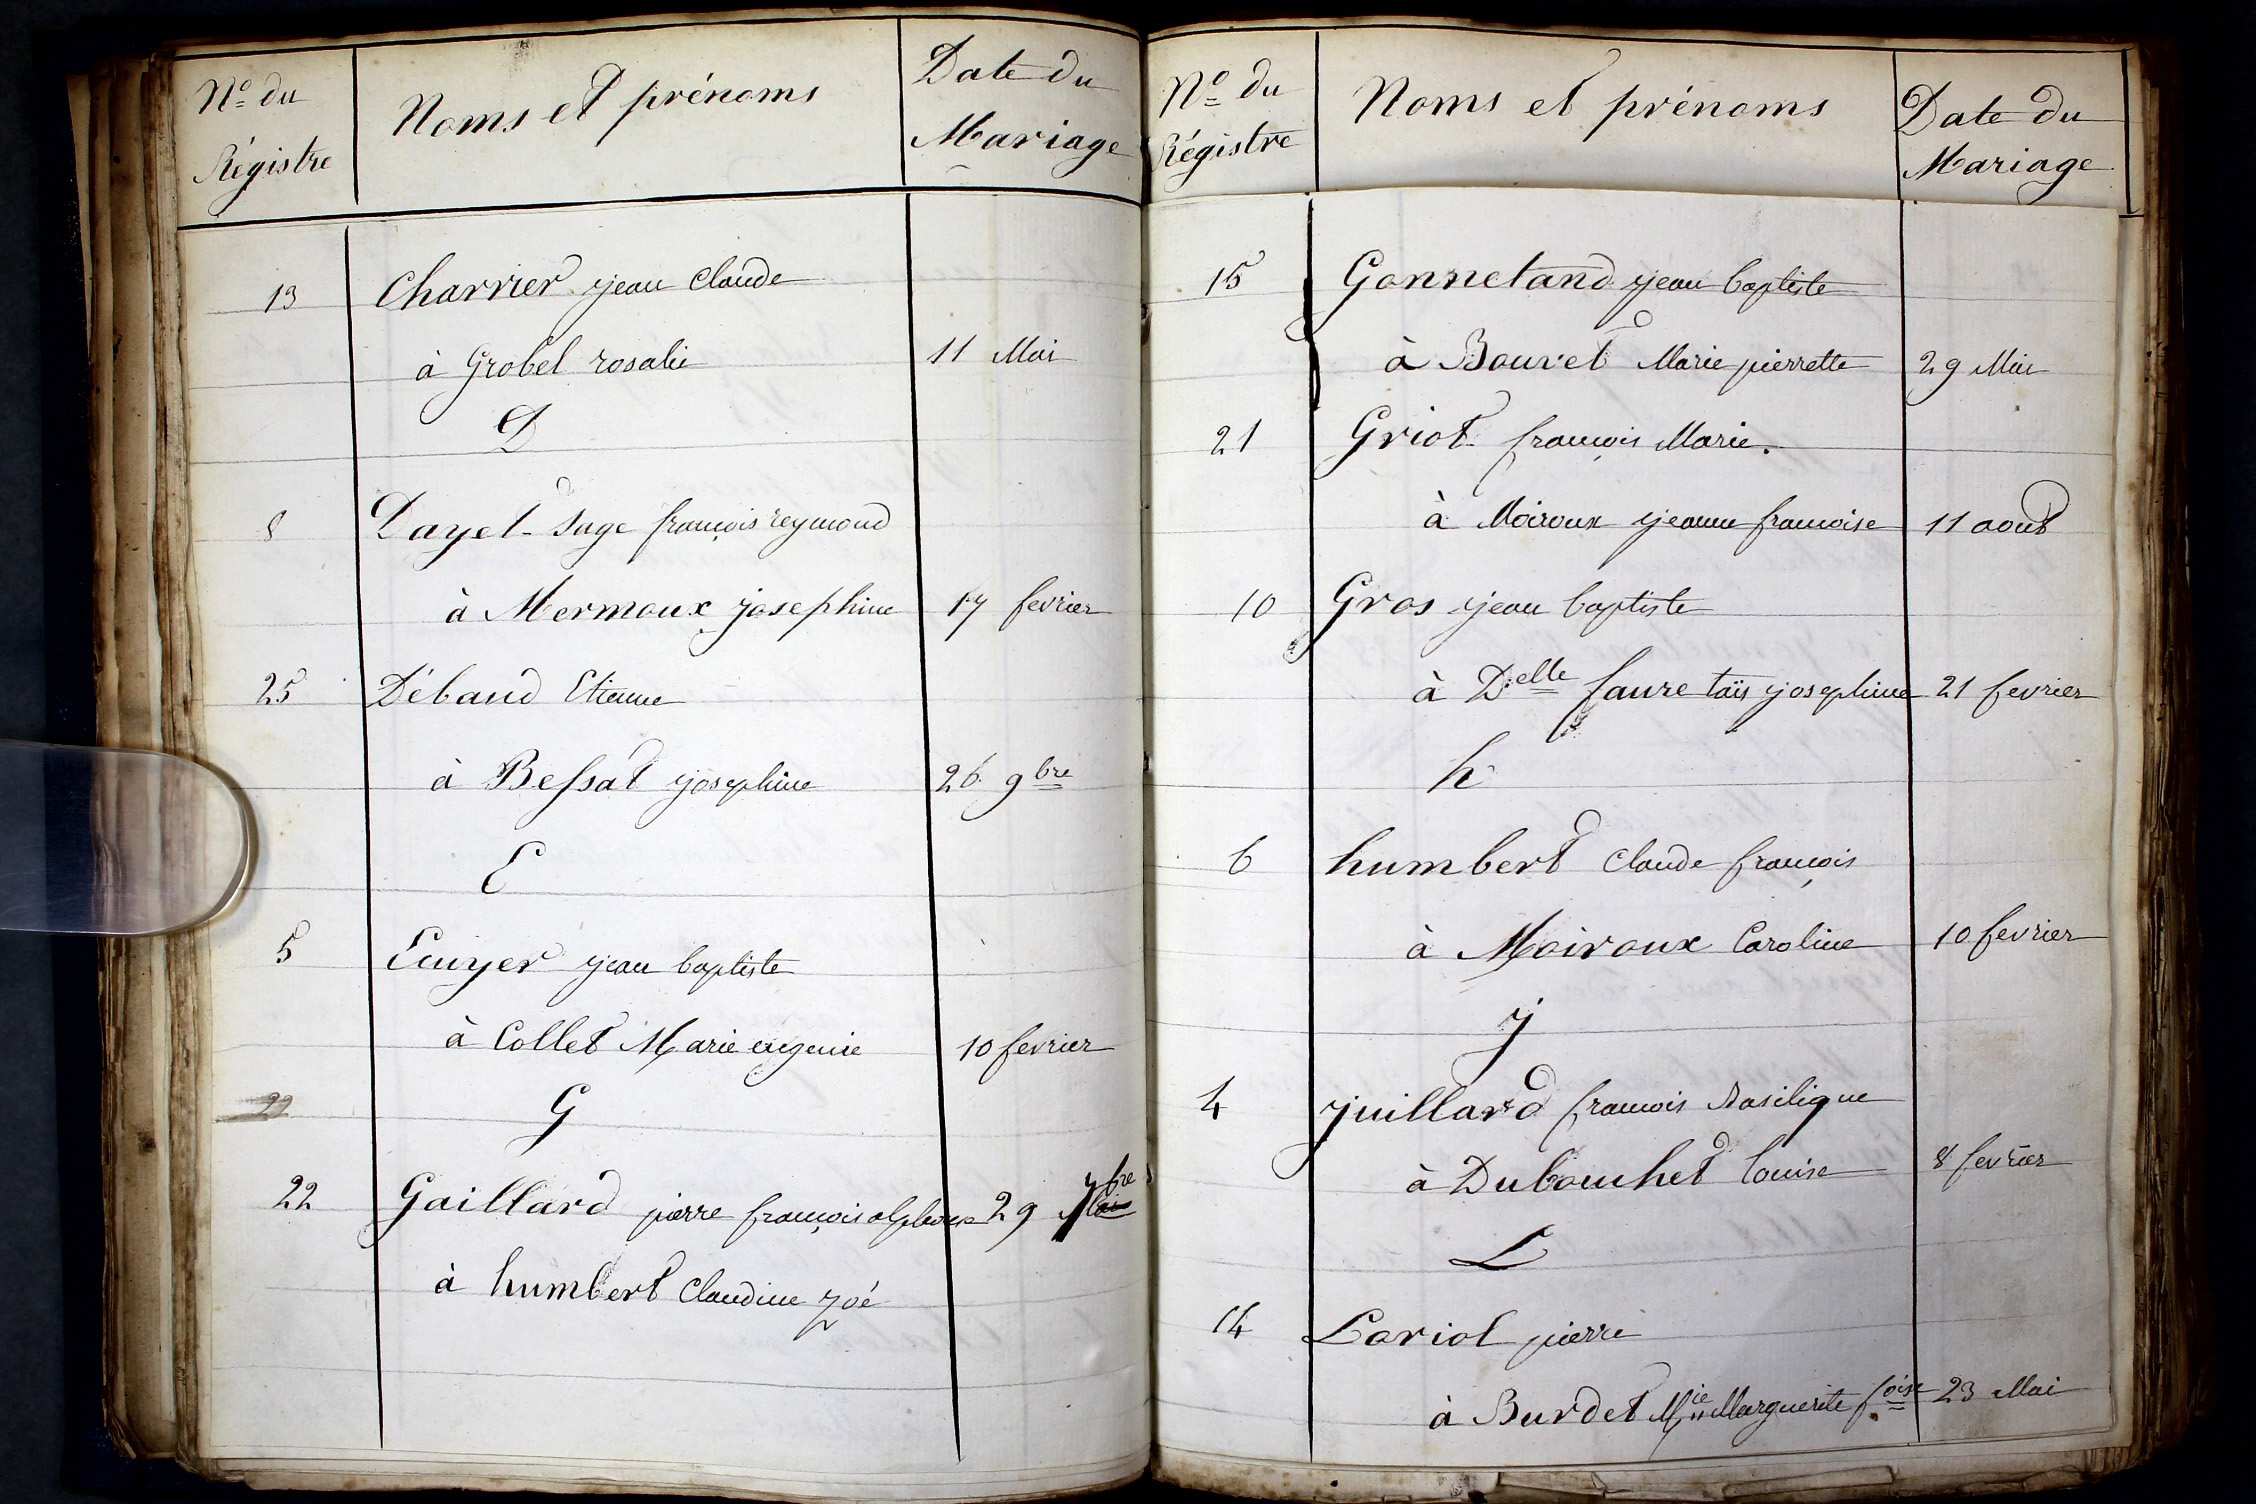 No du
Régistre
Noms et prénoms
Date du
Mariage
13 Charrier jean Claude
à Grobel rosalie 11 Mai
D
8 Dayet-Sage françois reymond
à Mermoux josephine 17 fevrier
25 Débaud Etienne
à Bessat josephine 26 9bre
E
5 Ecuyer jean baptiste
à Collet Marie eugenie 10 fevrier
22 G
22 Gaillard pierre françois alphonse 29 Mai 7bre
à humbert Claudine Zoé
No du
Régistre
Noms et prénoms
Date du
Mariage
15 Gonnetand jean baptiste
à Bouvet Marie pierrette 29 Mai
21 Griot françois Marie.
à Moiroux jeanne francoise 11 aout
10 Gros jean baptiste
à Delle faure taïs josephine 21 fevrier
h
6 humbert Claude françois
à Moiroux Caroline 10 fevrier
J
4 Juillard francois Basilique
à Dubouchet louise 8 fevrier
L
14 Loriol pierre
à Burdet Mie Marguerite foise 23 Mai